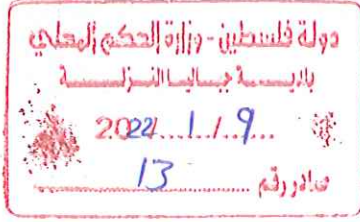 دولة فلسطين - وزارة الحكم المحلي
بلديـــة جباليا النـزلــــة
2022 / 1 / 9
صادر رقم 13